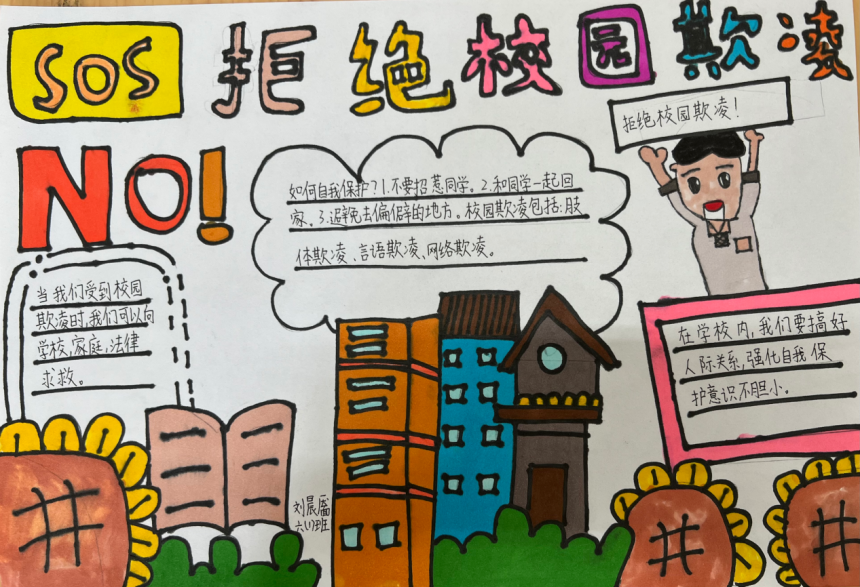 SOS 拒绝校园欺凌
拒绝校园欺凌！
NO!
如何自我保护？1.不要招惹同学。2.和同学一起回
家。3.避免去偏僻的地方。校园欺凌包括：肢
体欺凌、言语欺凌、网络欺凌。
当我们受到校园
欺凌时，我们可以向
学校，家庭，法律
求救。
在学校内，我们要搞好
人际关系，强化自我保
护意识不胆小。
刘晨
六(1)班